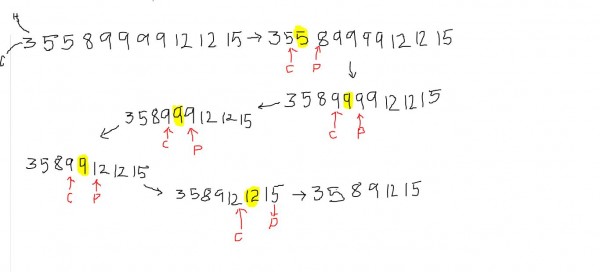 H
C 3 5 5 8 9 9 9 9 12 12 15 → 3 5 5 8 9 9 9 9 12 12 15
C P
3 5 8 9 9 9 9 12 12 15
C P
3 5 8 9 9 9 12 12 15
C P
3 5 8 9 9 12 12 15
C P
3 5 8 9 12 12 15 → 3 5 8 9 12 15
C P